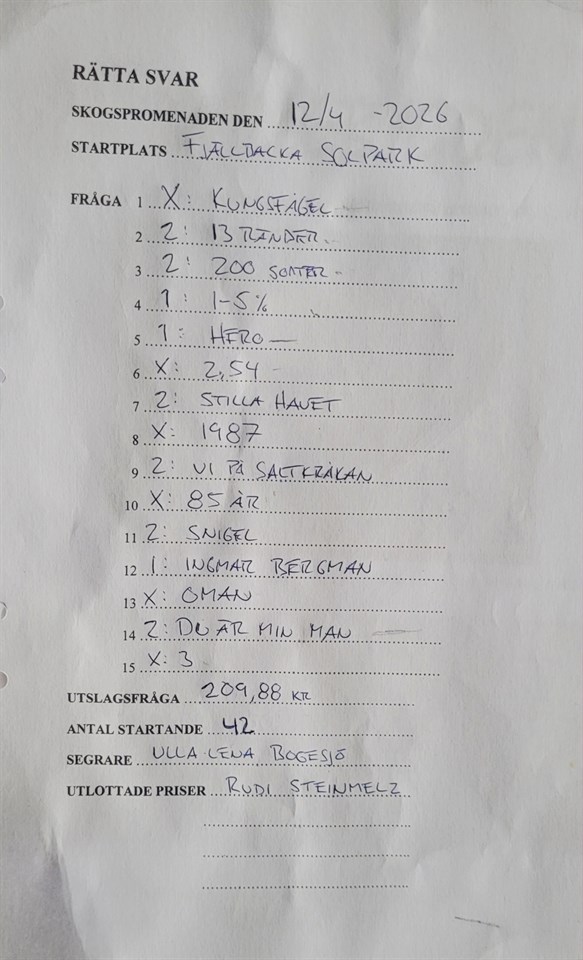 RÄTTA SVAR
SKOGSPROMENADEN DEN 12/4 -2026
STARTPLATS FJÄLLBACKA SOLPARK
FRÅGA 1 X: KUNGSFÅGEL
2 2: 13 RÄNDER
3 2: 200 SORTER
4 1: 1-5%
5 1: HERO
6 X: 2,54
7 2: STILLA HAVET
8 X: 1987
9 2: VI PÅ SALTKRÅKAN
10 X: 85 ÅR
11 2: SNIGEL
12 1: INGMAR BERGMAN
13 X: OMAN
14 2: DU ÄR MIN MAN
15 X: 3
UTSLAGSFRÅGA 209,88 KR
ANTAL STARTANDE 42
SEGRARE ULLA LENA BOGESJÖ
UTLOTTADE PRISER RUDI STEINMELZ